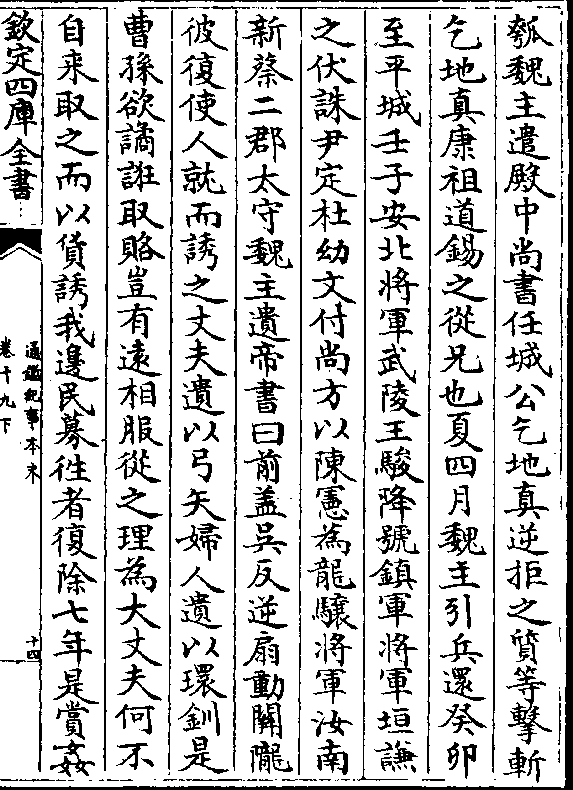 瓠魏主遣殿中尚書任城公乞地真逆拒之質等擊斬
乞地真康祖道錫之從兄也夏四月魏主引兵還癸卯
至平城壬子安北將軍武陵王駿降號鎮軍將軍垣謙
之伏誅尹定杜幼文付尚方以陳憲為龍驤將軍汝南
新蔡二郡太守魏主遺帝書曰前盖吳反逆扇動關隴
彼復使人就而誘之丈夫遺以弓矢婦人遺以環釧是
曹孫欲譎誑取賂豈有遠相服從之理為大丈夫何不
自来取之而以貨誘我邊民募徃者復除七年是賞姦
欽定四庫全書
通鑑紀事本末
卷十九下
十四